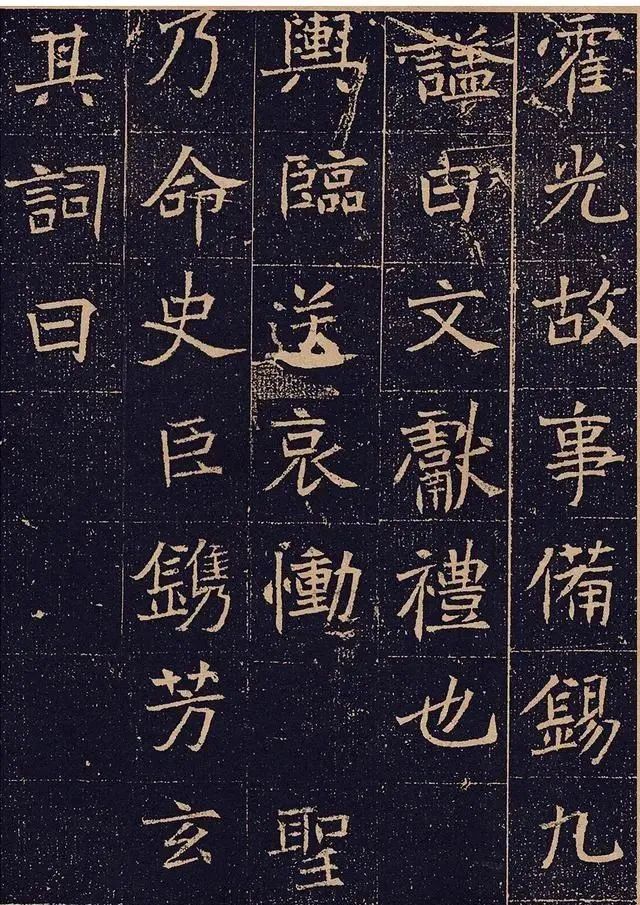 霍光故事備錫九
謚曰文獻禮也
輿臨送哀慟 聖
乃命史臣鐫芳玄
其詞曰